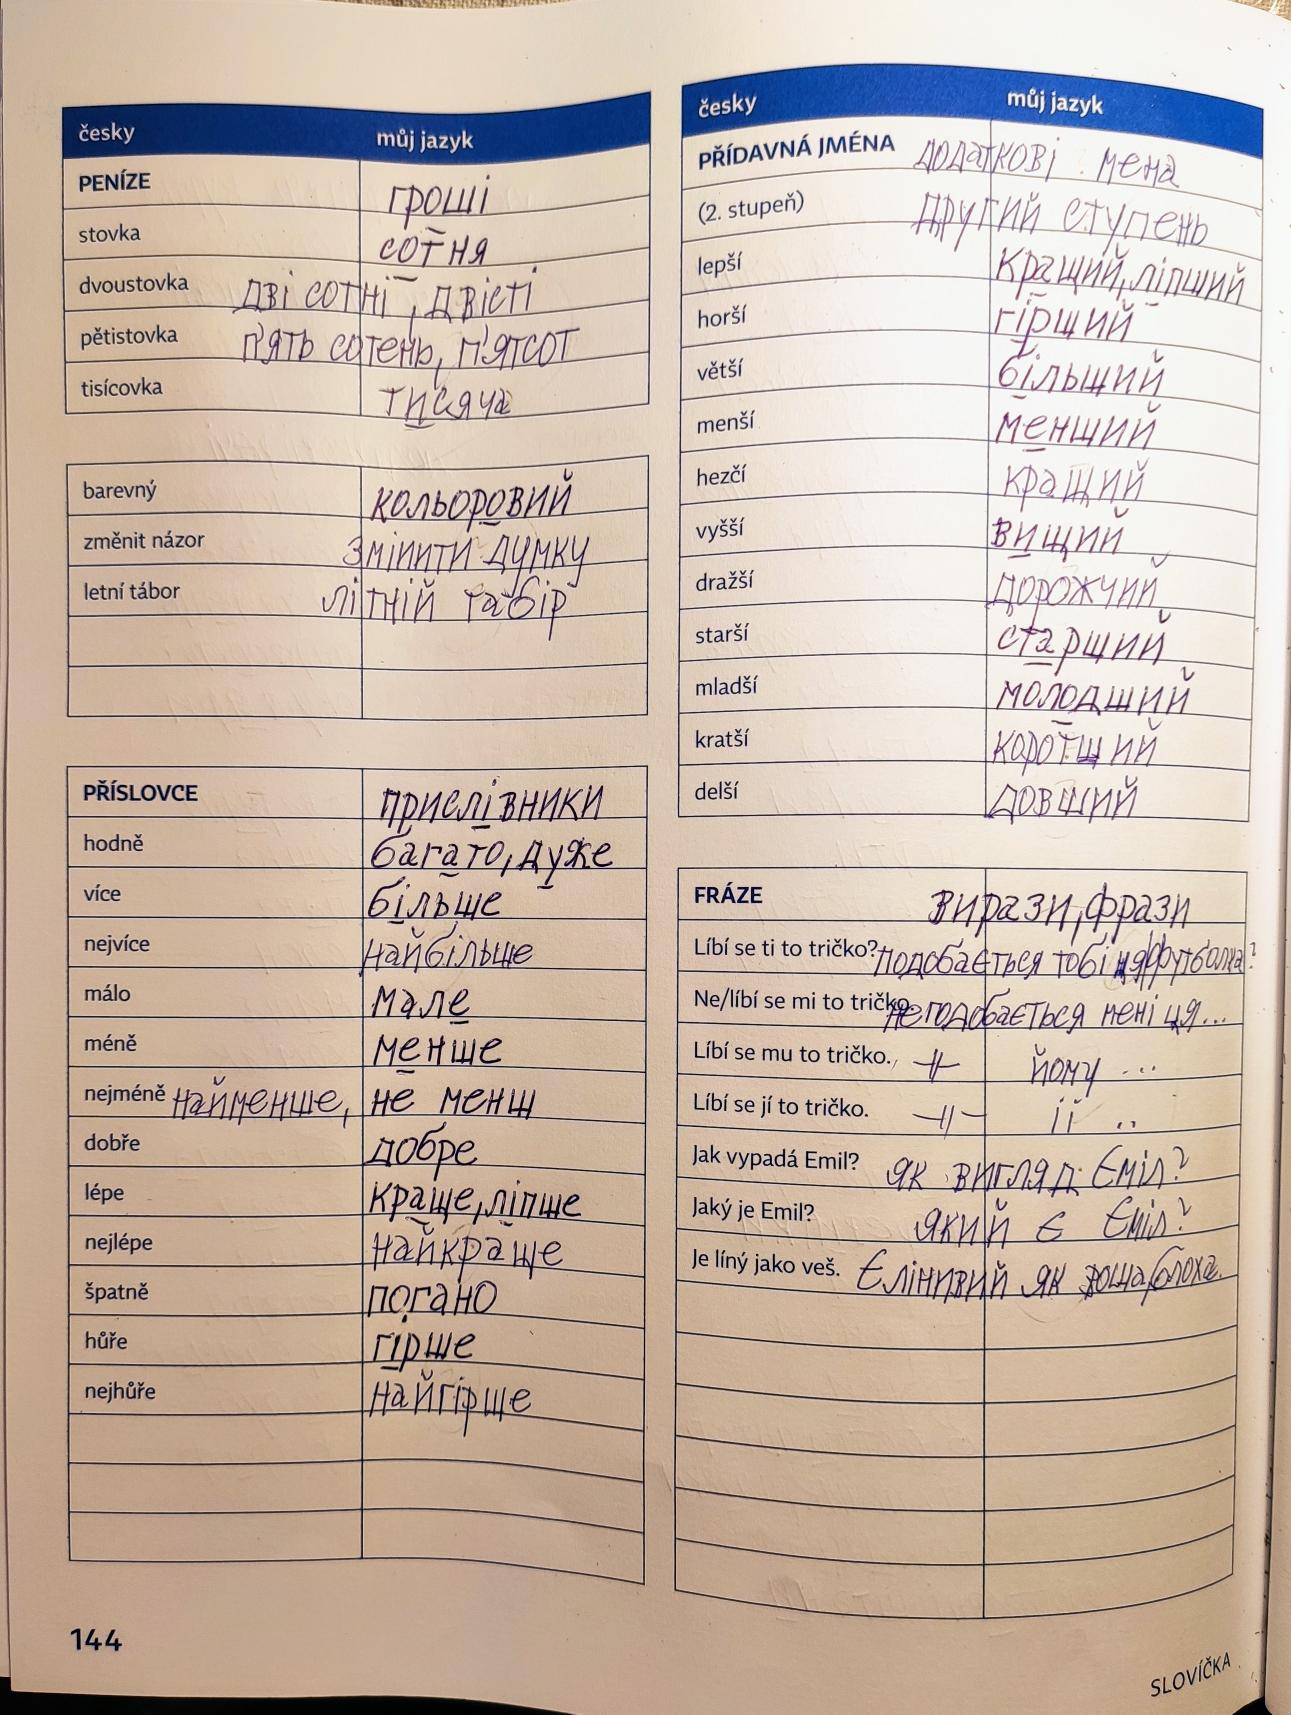 česky můj jazyk
PENÍZE гроші
stovka сотня
dvoustovka дві сотні, двісті
pětistovka п'ять сотень, п'ятсот
tisícovka тисяча
barevný кольоровий
změnit názor змінити думку
letní tábor літній табір
PŘÍSLOVCE прислівники
hodně багато, дуже
více більше
nejvíce найбільше
málo мале
méně менше
nejméně найменше, не менш
dobře добре
lépe краще, ліпше
nejlépe найкраще
špatně погано
hůře гірше
nejhůře найгірше
144
česky můj jazyk
PŘÍDAVNÁ JMÉNA додаткові мена
(2. stupeň) другий ступень
lepší кращий, ліпший
horší гірший
větší більший
menší менший
hezčí кращий
vyšší вищий
dražší дорожчий
starší старший
mladší молодший
kratší коротший
delší довший
FRÁZE вирази, фрази
Líbí se ti to tričko? подобається тобі ця футболка?
Ne/líbí se mi to tričko. не подобається мені ця...
Líbí se mu to tričko. -//- йому ...
Líbí se jí to tričko. -//- її ..
Jak vypadá Emil? як вигляд Еміл?
Jaký je Emil? який є Еміл?
Je líný jako veš. Є лінивий як воша, блоха.
SLOVÍČKA